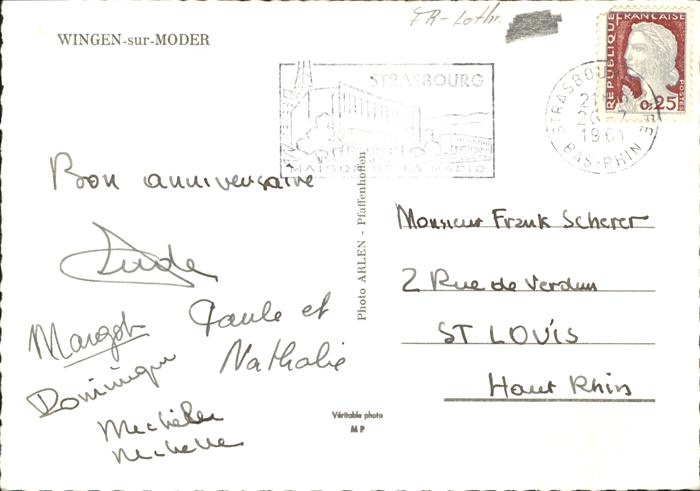 FR-Lothr.
WINGEN-sur-MODER
REPUBLIQUE FRANÇAISE
POSTES
0,25
STRASBOURG
MAISON DE LA RADIO
STRASBOURG
1961
BAS-RHIN
Bon anniversaire
Aude
Margot
Paule et
Nathalie
Dominique
Michèle
Michelle
Photo ARLEN - Pfaffenhoffen
Véritable photo
MP
Monsieur Frank Scherer
2 Rue de Verdun
ST LOUIS
Haut Rhin